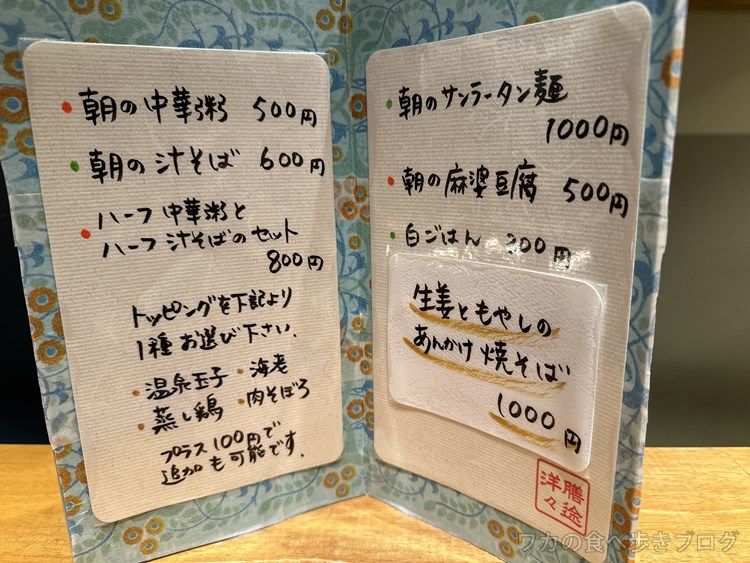 朝の中華粥 500円
朝の汁そば 600円
ハーフ中華粥と
ハーフ汁そばのセット
800円
トッピングを下記より
1種お選び下さい.
・温泉玉子 ・海老
・蒸し鶏 ・肉そぼろ
プラス100円で
追加も可能です.
朝のサンラータン麺
1000円
朝の麻婆豆腐 500円
白ごはん 200円
生姜ともやしの
あんかけ焼そば
1000円
膳途
洋々
ワカの食べ歩きブログ